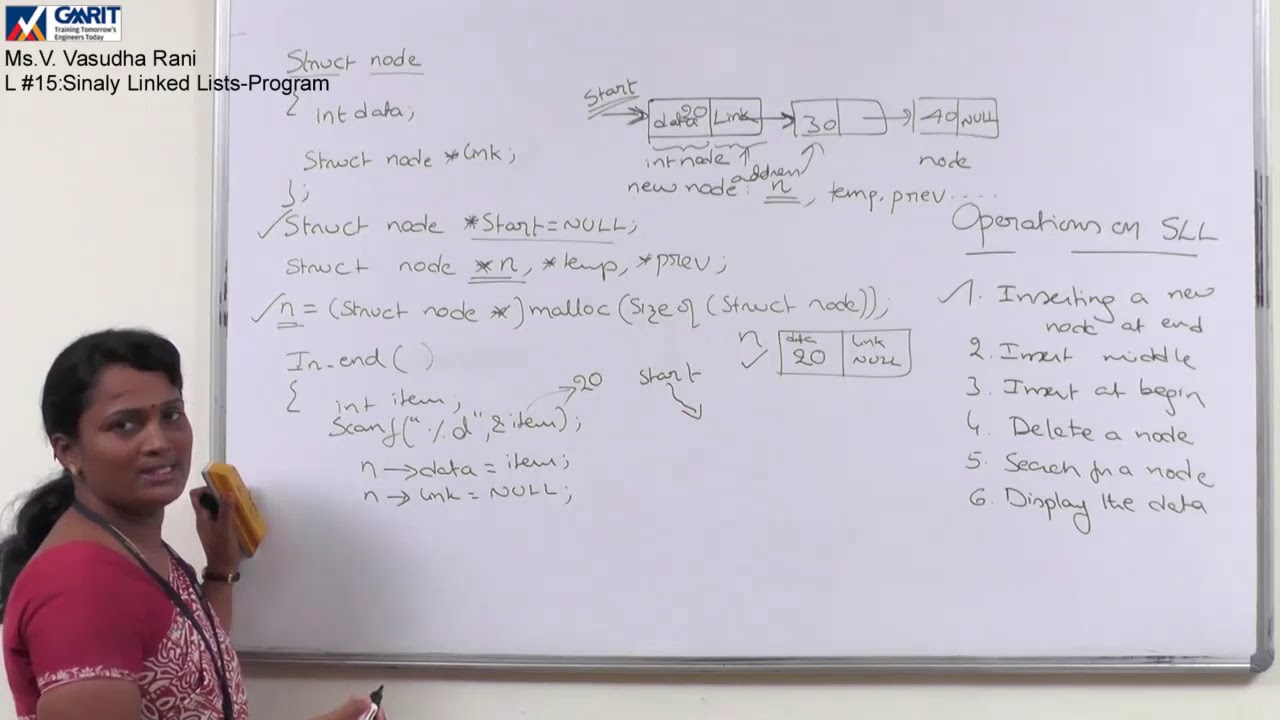 GMRIT
Training Tomorrow's
Engineers Today
Ms.V. Vasudha Rani
L #15:Sinaly Linked Lists-Program
Struct node
{ int data;
Struct node *link;
};
✓Struct node *Start=NULL;
Struct node *n, *temp, *prev;
✓n = (Struct node *) malloc (Size of (Struct node));
In_end( )
{ int item;
Scanf("%d", &item); 20
n→data = item;
n→link = NULL;
Start
data 20 Link 30 40 NULL
int node node
address
new node: n, temp, prev ....
n data link
✓ 20 NULL
Start
Operations on SLL
✓1. Inserting a new
node at end
2. Insert middle
3. Insert at begin
4. Delete a node
5. Search for a node
6. Display the data